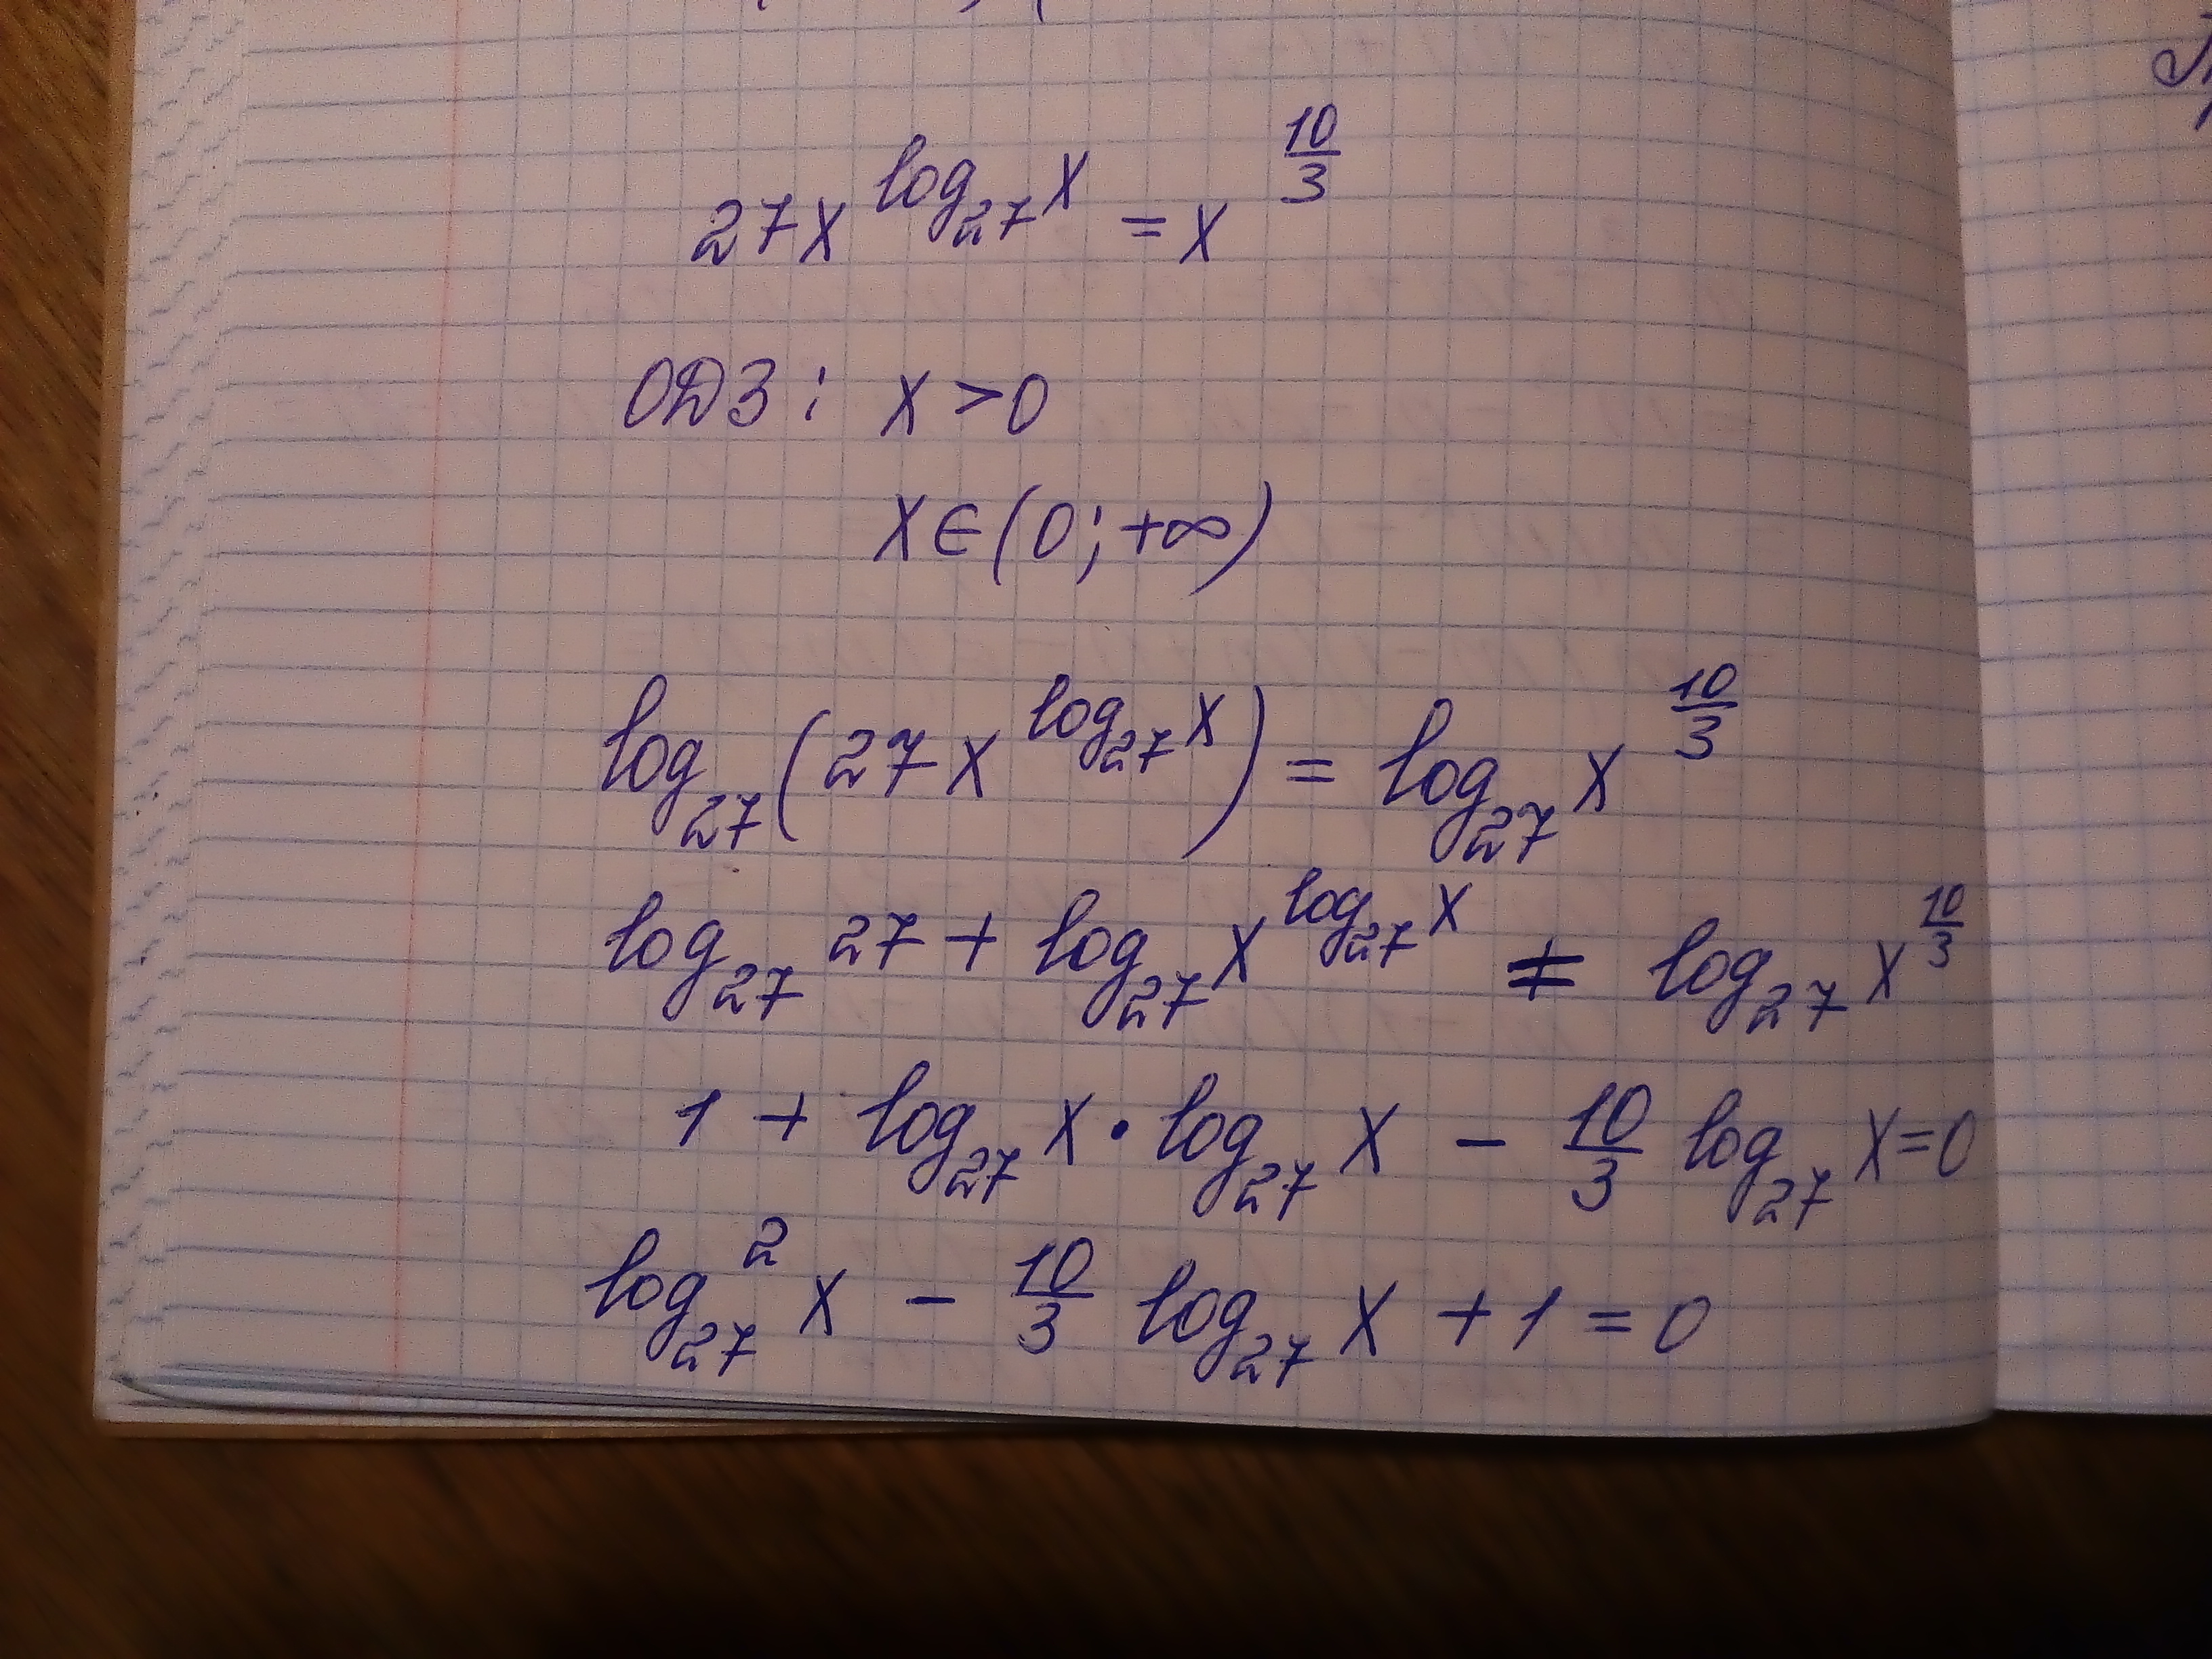 27x^{log_{27} x} = x^{10/3}
ОДЗ: x > 0
x ∈ (0; +∞)
log_{27}(27x^{log_{27} x}) = log_{27} x^{10/3}
log_{27} 27 + log_{27} x^{log_{27} x} ≠ log_{27} x^{10/3}
1 + log_{27} x · log_{27} x − 10/3 log_{27} x = 0
log_{27}^2 x − 10/3 log_{27} x + 1 = 0